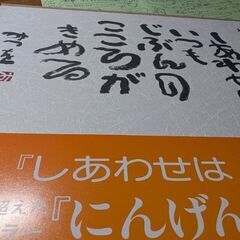 しあわせは
いつも
じぶんの
こころが
きめる
みつを
『しあわせは
超えた『にんげん
ラー